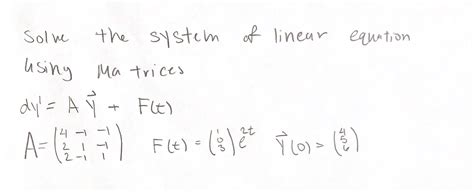 Solve the system of linear equation
Using Matrices
dy' = A Y⃗ + F(t)
A = (4 -1 -1; 2 1 -1; 2 -1 1) F(t) = (1; 0; 3) e^2t Y⃗(0) = (4; 5; 6)